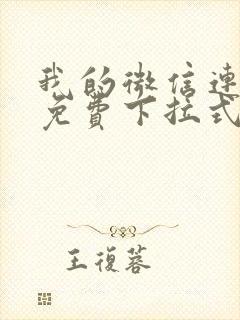 我的微信連
免費下拉式
王復蓉